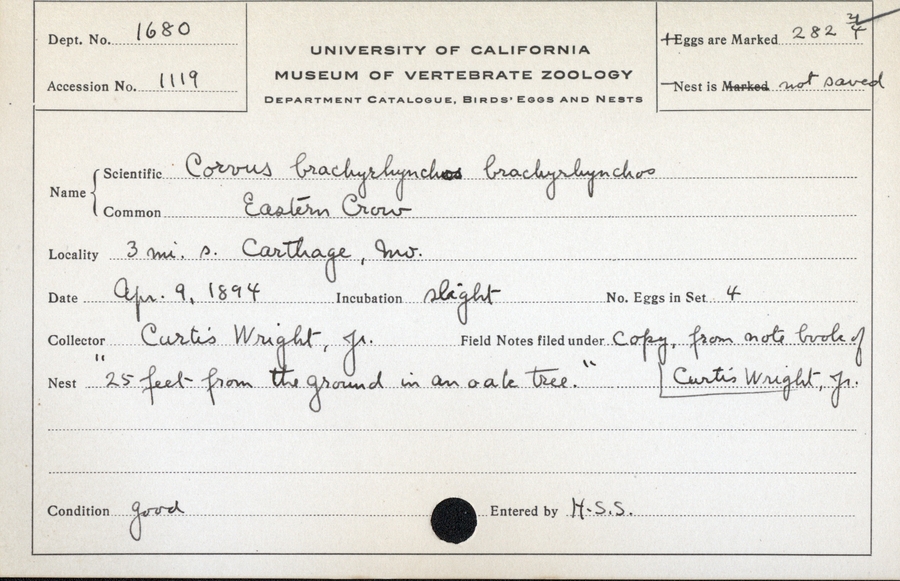 Dept. No. 1680
Accession No. 1119
UNIVERSITY OF CALIFORNIA
MUSEUM OF VERTEBRATE ZOOLOGY
DEPARTMENT CATALOGUE, BIRDS' EGGS AND NESTS
Eggs are Marked 282 2/4
Nest is Marked not saved
Name
Scientific Corvus brachyrhynchos brachyrhynchos
Common Eastern Crow
Locality 3 mi. s. Carthage, Mo.
Date Apr. 9, 1894 Incubation slight No. Eggs in Set 4
Collector Curtis Wright, Jr. Field Notes filed under Copy, from note book of
Nest "25 feet from the ground in an oak tree." Curtis Wright, Jr.
Condition good Entered by H.S.S.